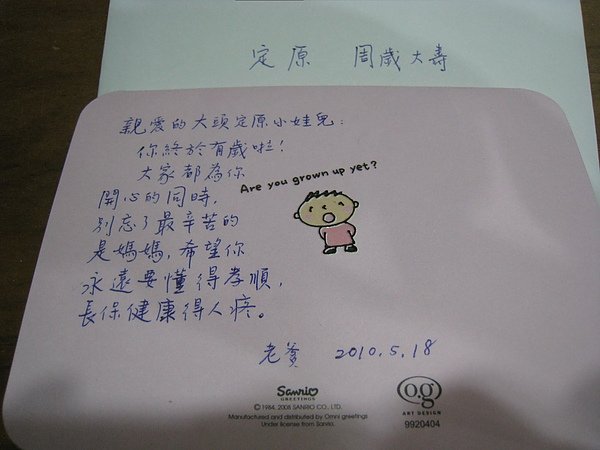 定原 周歲大壽
親愛的大頭定原小娃兒：
你終於有歲啦！
大家都為你
開心的同時，
別忘了最辛苦的
是媽媽，希望你
永遠要懂得孝順，
長保健康得人疼。
Are you grown up yet?
老爹 2010.5.18
Sanrio
GREETINGS
© 1984, 2008 SANRIO CO., LTD.
Manufactured and distributed by Omni greetings
Under license from Sanrio.
o.g
ART DESIGN
9920404